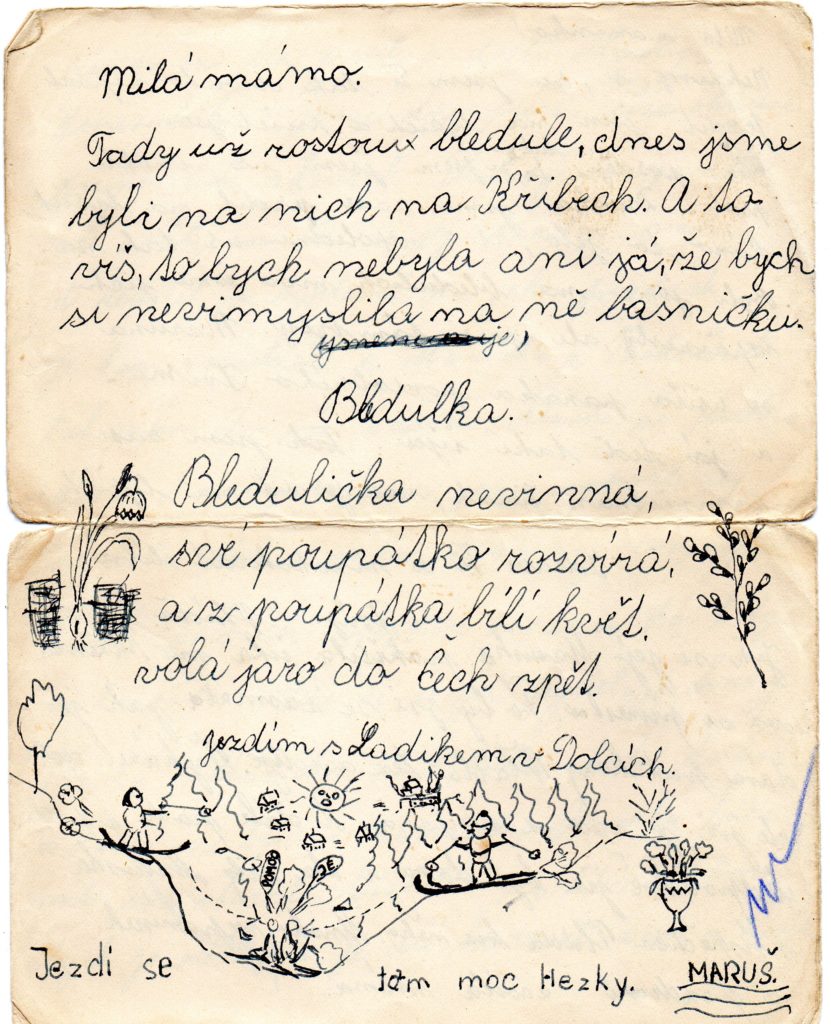 Milá mámo.
Tady už rostoux bledule, dnes jsme
byli na nich na Křibech. A to
víš, to bych nebyla ani já, že bych
si nevimyslila na ně básničku.
je,
Bledulka.
Bledulička nevinná,
své poupátko rozvírá,
a z poupátka bílí květ.
volá jaro do Čech zpět.
jezdím s Ladikem v Dolcích.
POMOC
JE
Jezdi se tam moc Hezky.
MARUŠ.